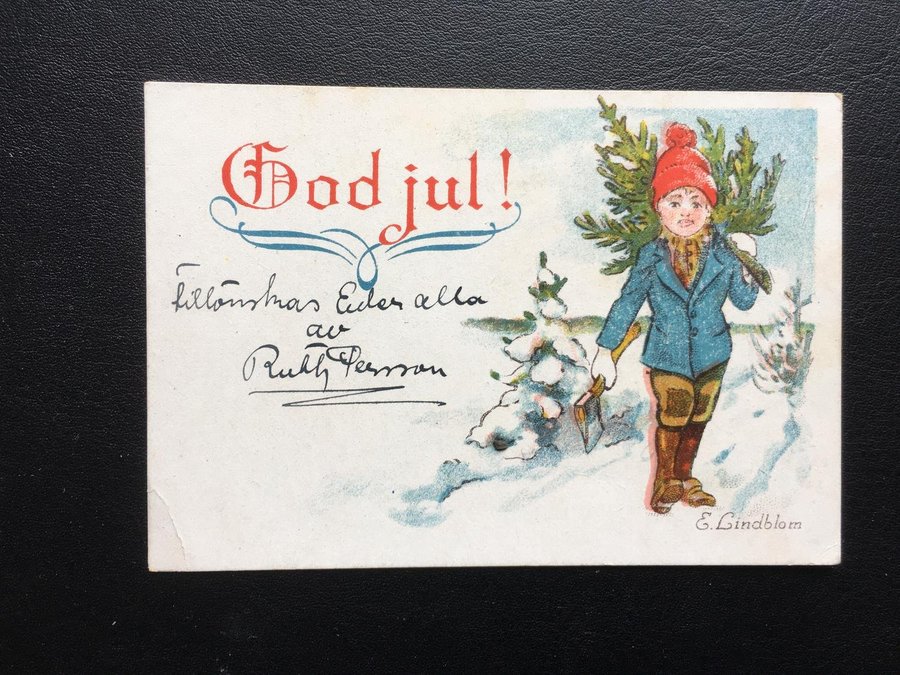 God jul!
tillönskas Eder alla
av
Ruth Persson
E. Lindblom